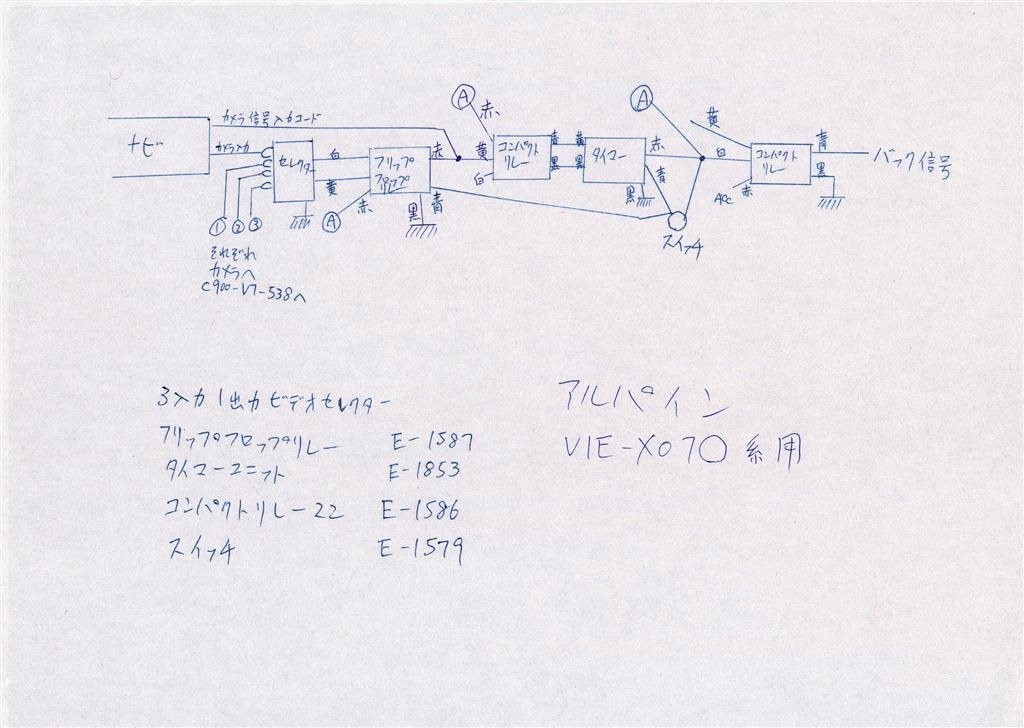 ナビ
カメラ信号入力コード
カメラ入力
セレクター
① ② ③
それぞれ
カメラへ
C900-V7-538へ
白
黄
Ⓐ
赤
フリップ
フロップ
リレー
赤
青
黒
Ⓐ
赤
黄
白
コンパクト
リレー
青
黒
黄
黒
タイマー
赤
青
黒
Ⓐ
スイッチ
黄
白
ACC
赤
コンパクト
リレー
青
黒
バック信号
3入力1出力ビデオセレクター
フリップフロップリレー E-1587
タイマーユニット E-1853
コンパクトリレー22 E-1586
スイッチ E-1579
アルパイン
VIE-X07〇系用